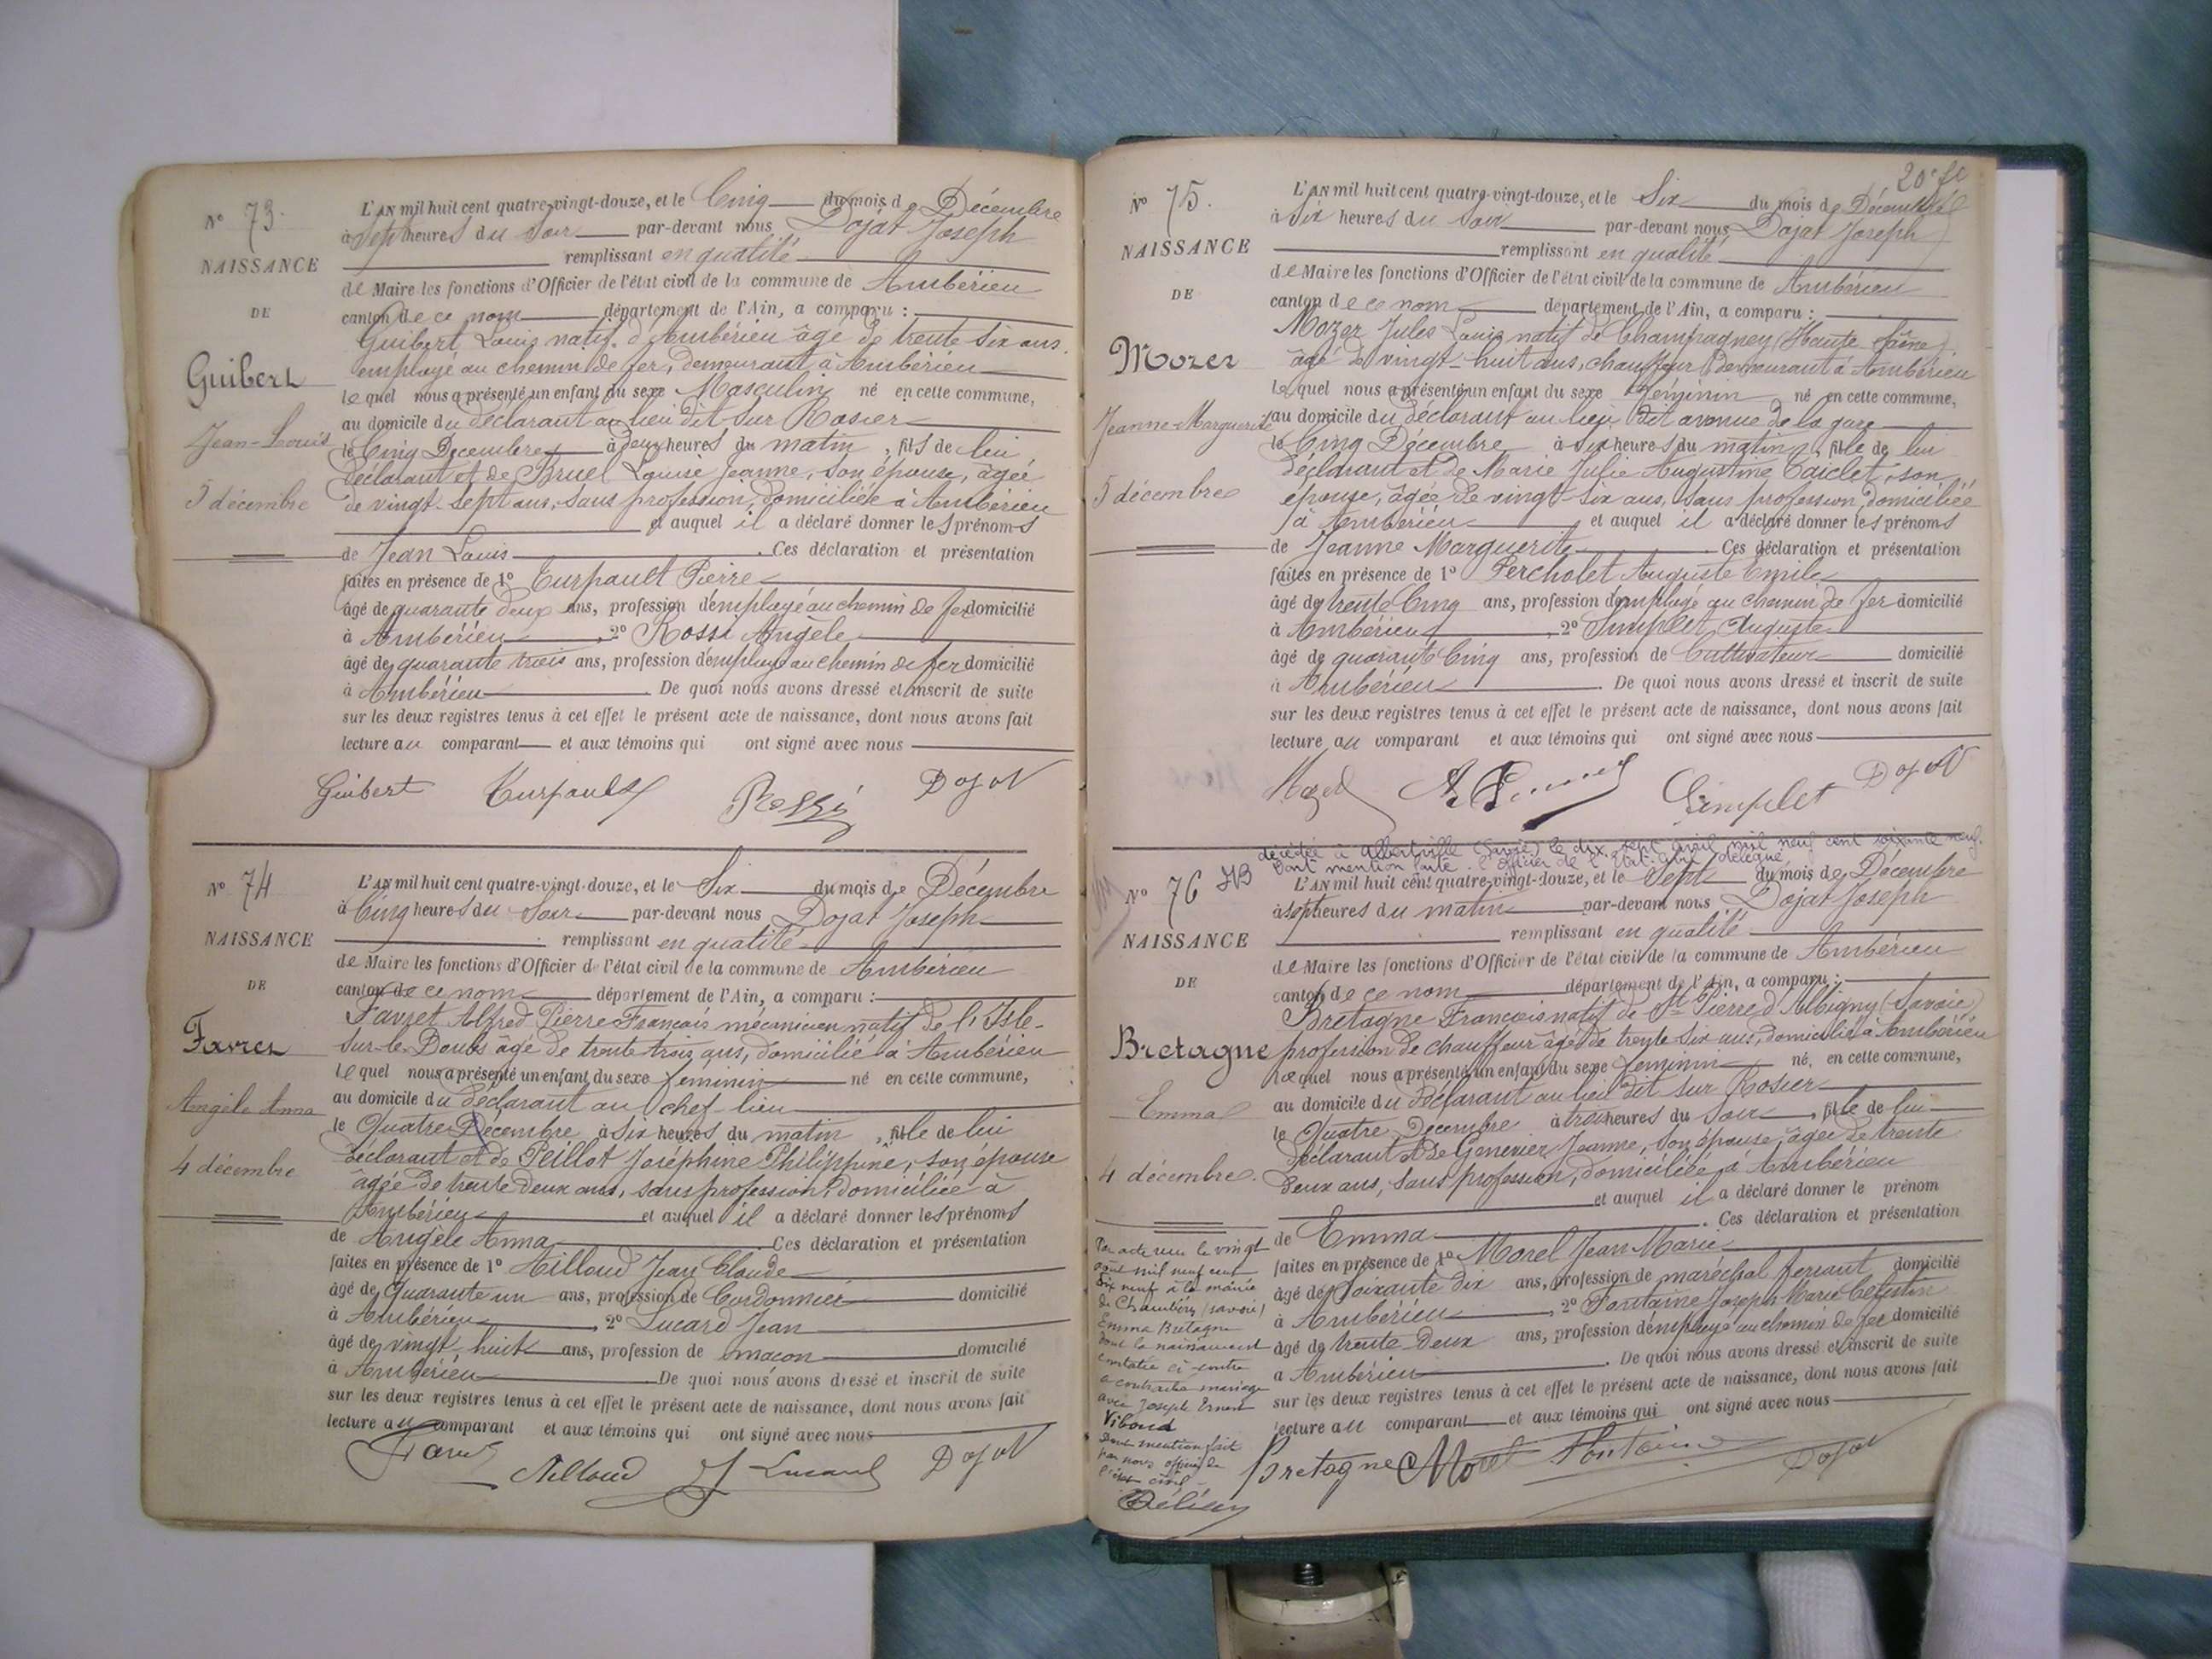 N° 73.
NAISSANCE
DE
Guibert
Jean-Louis
5 décembre
L'AN mil huit cent quatre-vingt-douze, et le Cinq du mois de Décembre
à Sept heures du Soir par-devant nous Dojat Joseph
remplissant en qualité
de Maire les fonctions d'Officier de l'état civil de la commune de Ambérieu
canton de ce nom département de l'Ain, a comparu :
Guibert Louis natif d'Ambérieu âgé de trente six ans
employé au chemin de fer, demeurant à Ambérieu
lequel nous a présenté un enfant du sexe Masculin né en cette commune,
au domicile du déclarant au lieu dit sur Rosier
le Cinq Décembre à deux heures du matin, fils de lui
déclarant et de Bruel Louise Jeanne, son épouse, âgée
de vingt-sept ans, sans profession, domiciliée à Ambérieu
et auquel il a déclaré donner les prénoms
de Jean Louis. Ces déclaration et présentation
faites en présence de 1° Turpault Pierre
âgé de quarante deux ans, profession d'employé au chemin de fer domicilié
à Ambérieu, 2° Rossi Angèle
âgé de quarante trois ans, profession d'employé au chemin de fer domicilié
à Ambérieu. De quoi nous avons dressé et inscrit de suite
sur les deux registres tenus à cet effet le présent acte de naissance, dont nous avons fait
lecture au comparant et aux témoins qui ont signé avec nous
Guibert Turpault Rossi Dojat
N° 74
NAISSANCE
DE
Favret
Angèle Anna
4 décembre
L'AN mil huit cent quatre-vingt-douze, et le Six du mois de Décembre
à Cinq heures du Soir par-devant nous Dojat Joseph
remplissant en qualité
de Maire les fonctions d'Officier de l'état civil de la commune de Ambérieu
canton de ce nom département de l'Ain, a comparu :
Favret Alfred Pierre François mécanicien natif de l'Isle-
sur-le-Doubs âgé de trente trois ans, domicilié à Ambérieu
lequel nous a présenté un enfant du sexe féminin né en cette commune,
au domicile du déclarant au chef-lieu
le Quatre Décembre à six heures du matin, fille de lui
déclarant et de Peillot Joséphine Philippine, son épouse
âgée de trente deux ans, sans profession, domiciliée à
Ambérieu et auquel il a déclaré donner les prénoms
de Angèle Anna. Ces déclaration et présentation
faites en présence de 1° Milloud Jean Claude
âgé de Quarante un ans, profession de Cordonnier domicilié
à Ambérieu, 2° Lucard Jean
âgé de vingt huit ans, profession de maçon domicilié
à Ambérieu. De quoi nous avons dressé et inscrit de suite
sur les deux registres tenus à cet effet le présent acte de naissance, dont nous avons fait
lecture au comparant et aux témoins qui ont signé avec nous
Milloud J Lucard Dojat
20e
N° 75.
NAISSANCE
DE
Mozer
Jeanne-Marguerite
5 décembre
L'AN mil huit cent quatre-vingt-douze, et le Six du mois de Décembre
à Six heures du Soir par-devant nous Dojat Joseph
remplissant en qualité
de Maire les fonctions d'Officier de l'état civil de la commune de Ambérieu
canton de ce nom département de l'Ain, a comparu :
Mozer Jules Louis natif de Champagney (Haute Saône)
âgé de vingt-huit ans, chauffeur demeurant à Ambérieu
lequel nous a présenté un enfant du sexe féminin né en cette commune,
au domicile du déclarant au lieu dit avenue de la gare
le Cinq Décembre à six heures du matin, fille de lui
déclarant et de Marie Julie Augustine Caiclet, son
épouse, âgée de vingt-six ans, sans profession, domiciliée
à Ambérieu et auquel il a déclaré donner les prénoms
de Jeanne Marguerite. Ces déclaration et présentation
faites en présence de 1° Percholet Auguste Emile
âgé de trente Cinq ans, profession d'employé au chemin de fer domicilié
à Ambérieu, 2° Simplet Auguste
âgé de quarante Cinq ans, profession de Cultivateur domicilié
à Ambérieu. De quoi nous avons dressé et inscrit de suite
sur les deux registres tenus à cet effet le présent acte de naissance, dont nous avons fait
lecture au comparant et aux témoins qui ont signé avec nous
Simplet Dojat
décédée à Albertville (Savoie) le dix-sept avril mil neuf cent soixante neuf.
Dont mention faite. l'officier de l'Etat-Civil délégué
N° 76
NAISSANCE
DE
Bretagne
Emma
4 décembre.
L'AN mil huit cent quatre-vingt-douze, et le Sept du mois de Décembre
à sept heures du matin par-devant nous Dojat Joseph
remplissant en qualité
de Maire les fonctions d'Officier de l'état civil de la commune de Ambérieu
canton de ce nom département de l'Ain, a comparu :
Bretagne François natif de St Pierre d'Albigny (Savoie)
profession de chauffeur âgé de trente six ans, domicilié à Ambérieu
lequel nous a présenté un enfant du sexe féminin né en cette commune,
au domicile du déclarant au lieu dit sur Rosier
le Quatre Décembre à trois heures du Soir, fille de lui
déclarant et de Genevier Jeanne, son épouse, âgée de trente
deux ans, sans profession, domiciliée à Ambérieu
et auquel il a déclaré donner le prénom
de Emma. Ces déclaration et présentation
faites en présence de 1° Morel Jean Marie
âgé de Soixante dix ans, profession de maréchal ferrant domicilié
à Ambérieu, 2° Fontaine Joseph Marie Célestin
âgé de trente deux ans, profession d'employé au chemin de fer domicilié
à Ambérieu. De quoi nous avons dressé et inscrit de suite
sur les deux registres tenus à cet effet le présent acte de naissance, dont nous avons fait
lecture au comparant et aux témoins qui ont signé avec nous
Bretagne Morel Fontaine Dojat
Par acte reçu le vingt
août mil neuf cent
dix neuf à la mairie
de Chambéry (Savoie)
Emma Bretagne
dont la naissance est
constatée ci-contre
a contracté mariage
avec Joseph Ernest
Viboud
Dont mention fait
par nous officier de
l'état civil